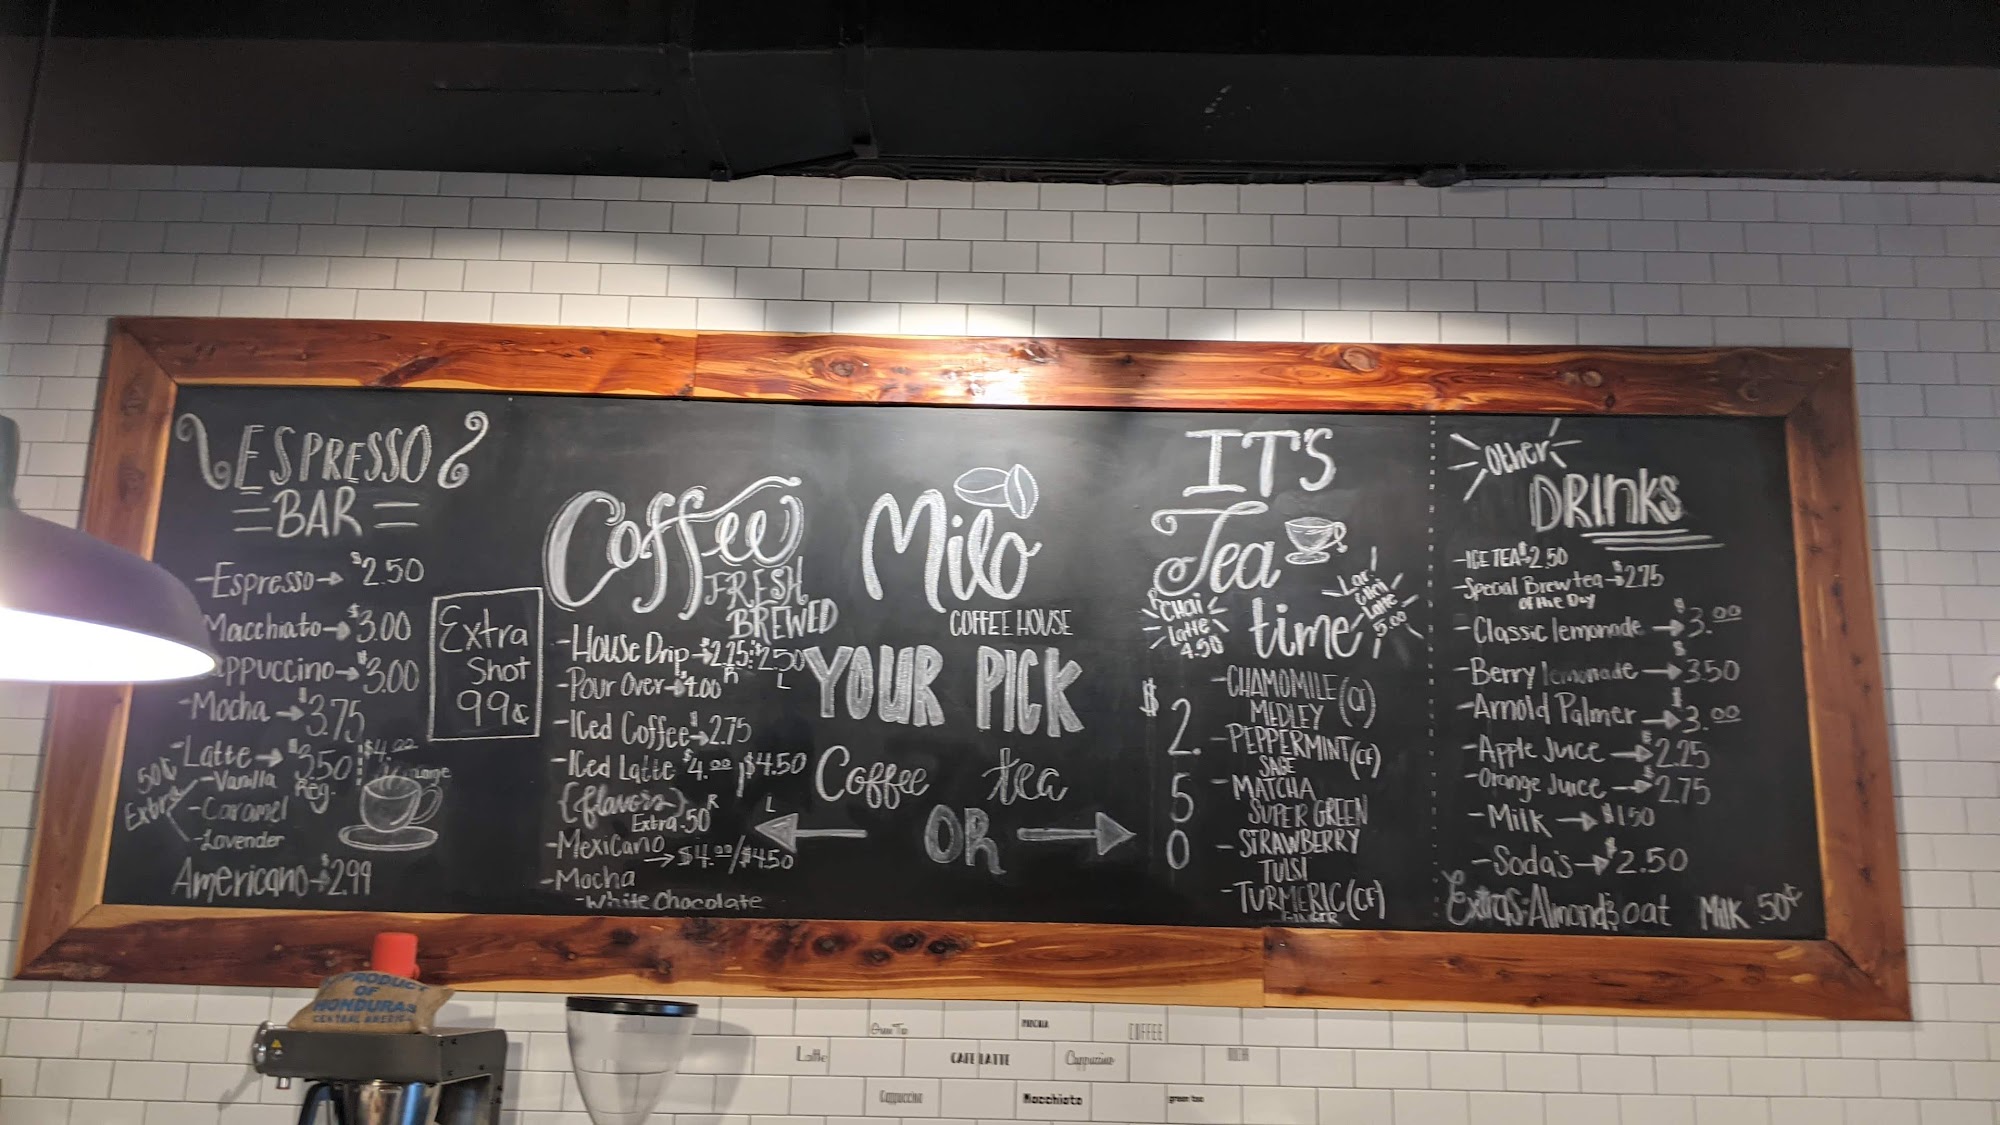 ESPRESSO
BAR
-Espresso→ $2.50
Macchiato→ $3.00
appuccino→ $3.00
-Mocha → $3.75
-Latte → $3.50 $4.00
Reg. Large
50¢
Extra
-Vanilla
-Caramel
-Lavender
Americano→ $2.99
Extra
Shot
99¢
Coffee
FRESH
BREWED
-House Drip→ $2.25 $2.50
R L
-Pour Over→ $4.00
-Iced Coffee→ $2.75
-Iced Latte $4.00 / $4.50
R L
{flavors}
Extra .50
-Mexicano
→ $4.00/$4.50
-Mocha
-White Chocolate
Milo
COFFEE HOUSE
YOUR PICK
Coffee tea
← OR →
IT'S
Tea
time
Chai
Latte
4.50
Latte
5.00
$2.50
-CHAMOMILE (CF)
MEDLEY
-PEPPERMINT (CF)
SAGE
-MATCHA
SUPER GREEN
- STRAWBERRY
TULSI
-TURMERIC (CF)
GINGER
Other
DRINKS
-ICE TEA→ $2.50
-Special Brew tea→ $2.75
of the Day
-Classic lemonade → $3.00
-Berry lemonade → $3.50
-Arnold Palmer → $3.00
-Apple Juice → $2.25
-Orange Juice → $2.75
-Milk → $1.50
-Soda's → $2.50
Extras: Almond & oat Milk 50¢
PRODUCT
OF
HONDURAS
CENTRAL AMERICA
Green Tea
MOCHA
COFFEE
Latte
CAFE LATTE
Cappuccino
MOCHA
Cappuccino
Macchiato
green tea